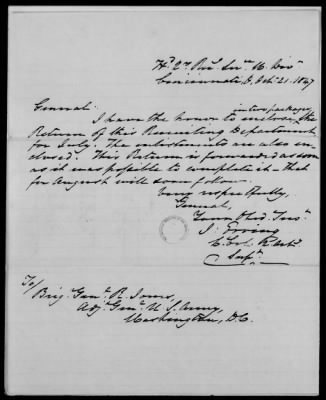 Cincinnati, O. Oct. 21. 1847
General:
in two packages
I have the honor to enclose the
Return of this Recruiting Department
for July. The enlistments are also en-
closed. This Return is forwarded as soon
as it was possible to complete it – that
for August will soon follow.
Very respectfully,
General,
Your Obt. Servt.
J. Erving
Supt.
To/
Brig. Genl. R. Jones,
Adjt. Genl. U. S. Army,
Washington, D.C.